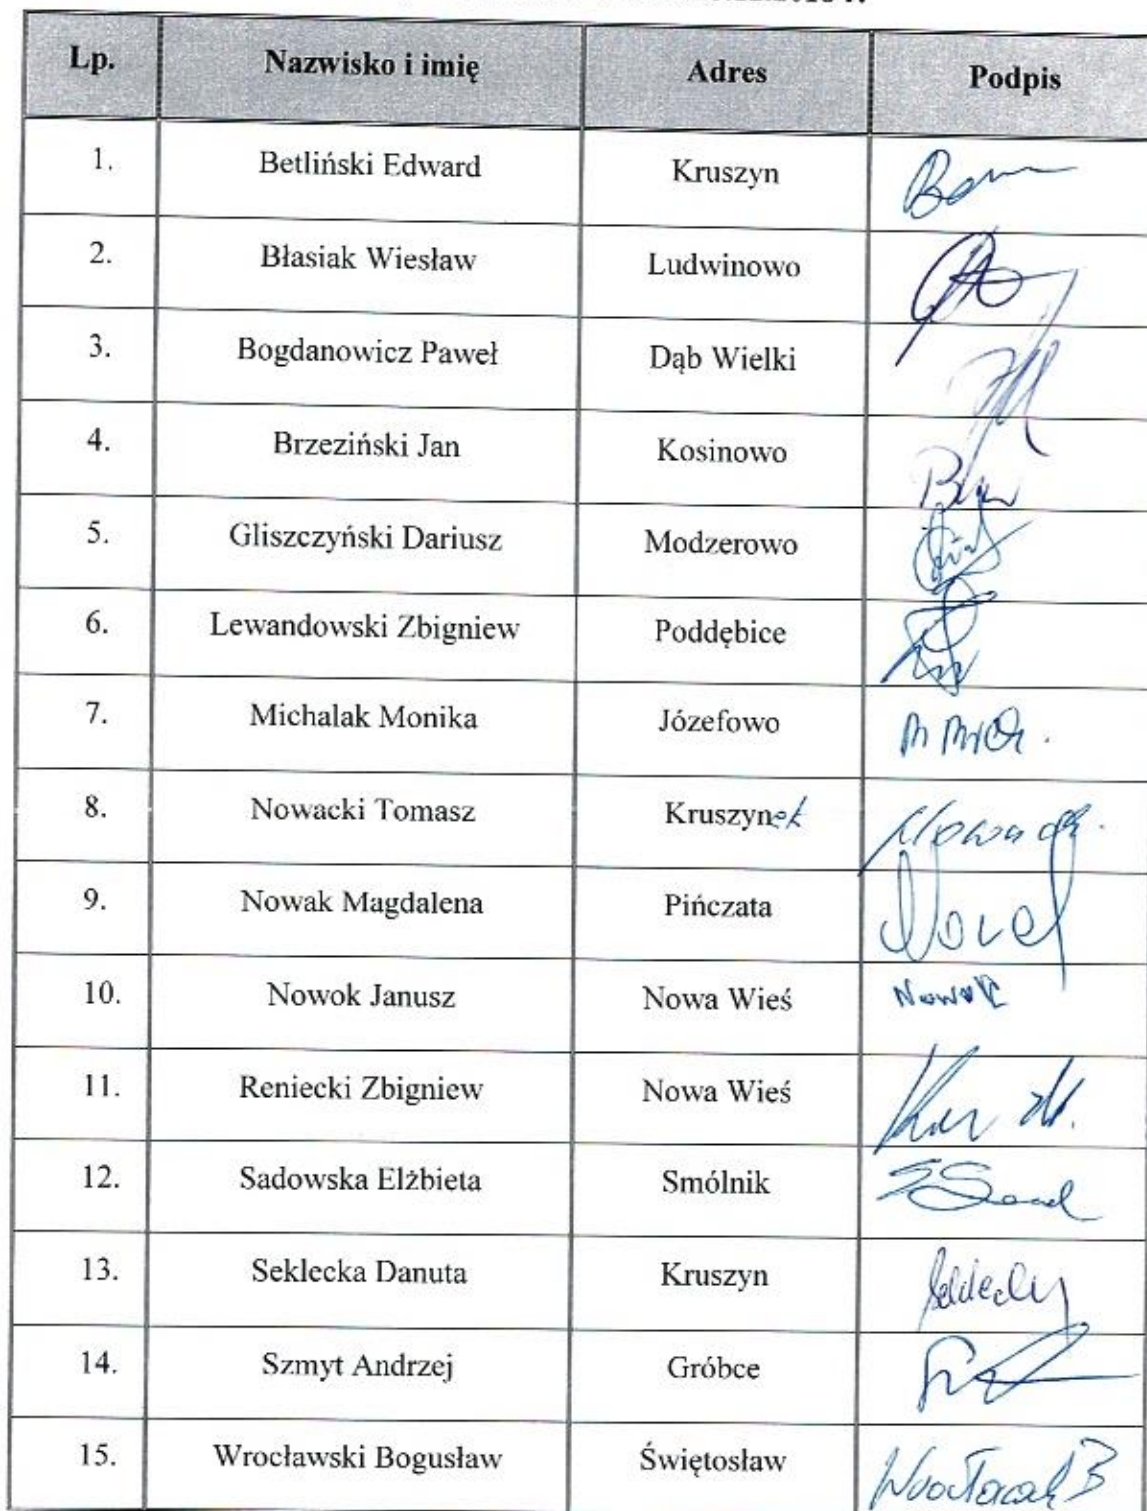 Lp. Nazwisko i imię Adres Podpis
1. Betliński Edward Kruszyn
2. Błasiak Wiesław Ludwinowo
3. Bogdanowicz Paweł Dąb Wielki
4. Brzeziński Jan Kosinowo
5. Gliszczyński Dariusz Modzerowo
6. Lewandowski Zbigniew Poddębice
7. Michalak Monika Józefowo
8. Nowacki Tomasz Kruszynek
9. Nowak Magdalena Pińczata
10. Nowok Janusz Nowa Wieś
11. Reniecki Zbigniew Nowa Wieś
12. Sadowska Elżbieta Smólnik
13. Seklecka Danuta Kruszyn
14. Szmyt Andrzej Gróbce
15. Wrocławski Bogusław Świętosław